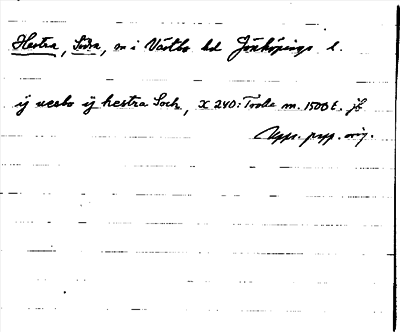 Hestra, Södra, sn i Västbo hd Jönköpings l.
ÿ vesbo ÿ hestra Sock, X 240: Tvolla m. 1500 t. jb
Upps. papp. orig.